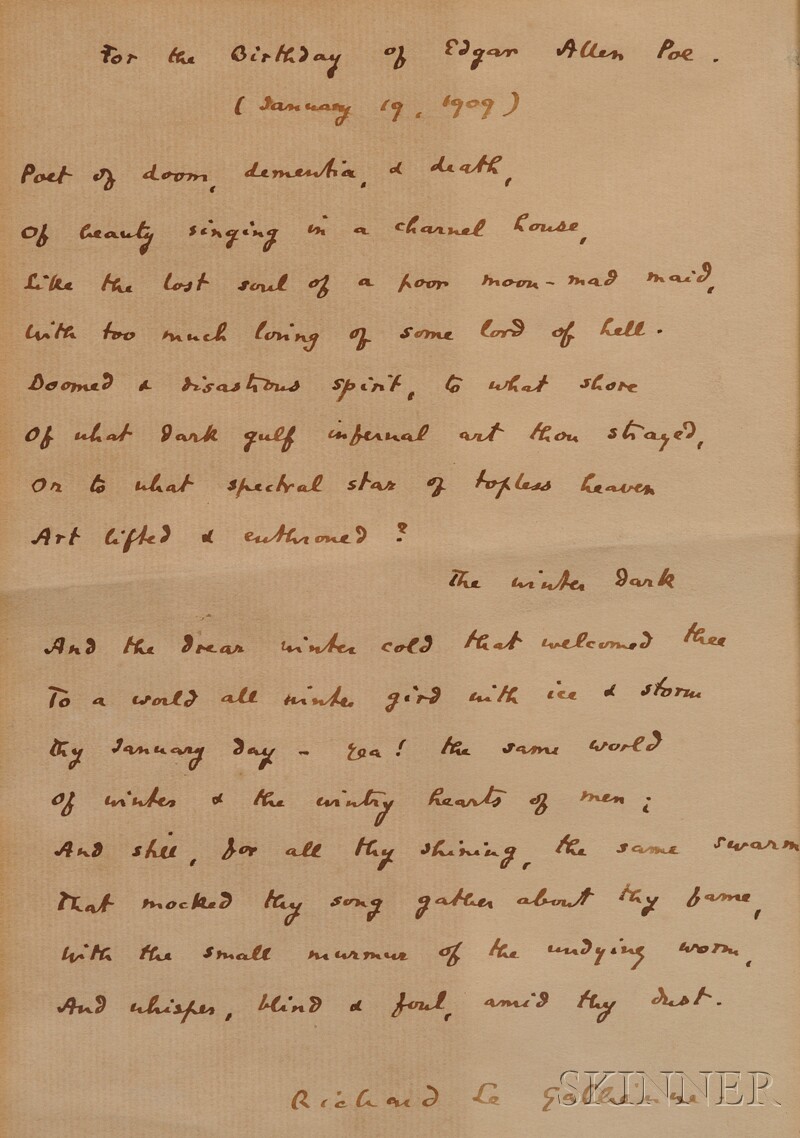 For the Birthday of Edgar Allen Poe.
(January 19, 1909)
Poet of doom, dementia, & death,
Of beauty singing in a charnel house,
Like the lost soul of a poor moon-mad maid,
With too much loving of some lord of hell.
Doomed & disastrous spirit, to what shore
Of what dark gulf infernal art thou strayed,
Or to what spectral star of topless heaven
Art lifted & enthroned?
The winter dark
And the drear winter cold that welcomed thee
To a world all winter gird with ice & storm
Thy January day - yea! the same world
Of winter & the wintry hearts of men;
And still, for all thy shining, the same swarm
That mocked thy song gather about thy fame,
With the small murmur of the undying worm,
And whisper, blind & foul, amid thy dust.
Richard Le Gallienne.
SKINNER